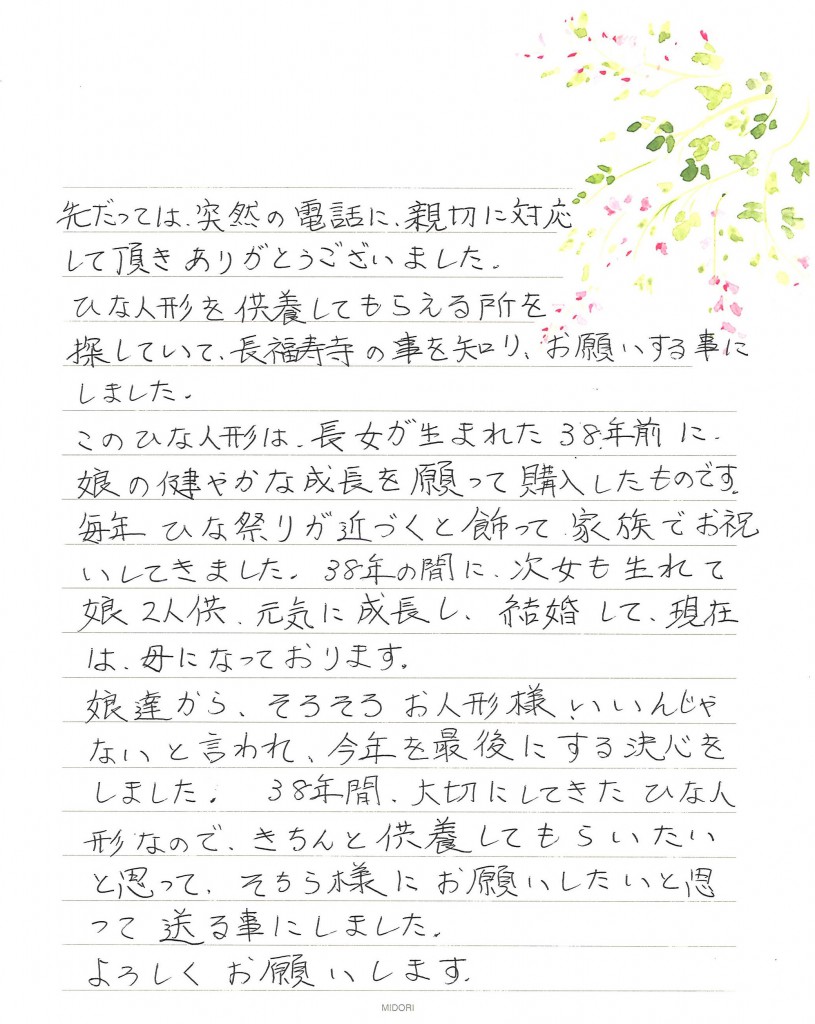 先だっては、突然の電話に、親切に対応
して頂きありがとうございました。
ひな人形を供養してもらえる所を
探していて、長福寿寺の事を知り、お願いする事に
しました。
このひな人形は、長女が生まれた38年前に、
娘の健やかな成長を願って購入したものです。
毎年ひな祭りが近づくと飾って家族でお祝
いしてきました。38年の間に、次女も生れて
娘2人供、元気に成長し、結婚して、現在
は、母になっております。
娘達から、そろそろお人形様、いいんじゃ
ないと言われ、今年を最後にする決心を
しました。 38年間、大切にしてきたひな人
形なので、きちんと供養してもらいたい
と思って、そちら様にお願いしたいと思
って送る事にしました。
よろしくお願いします。
MIDORI